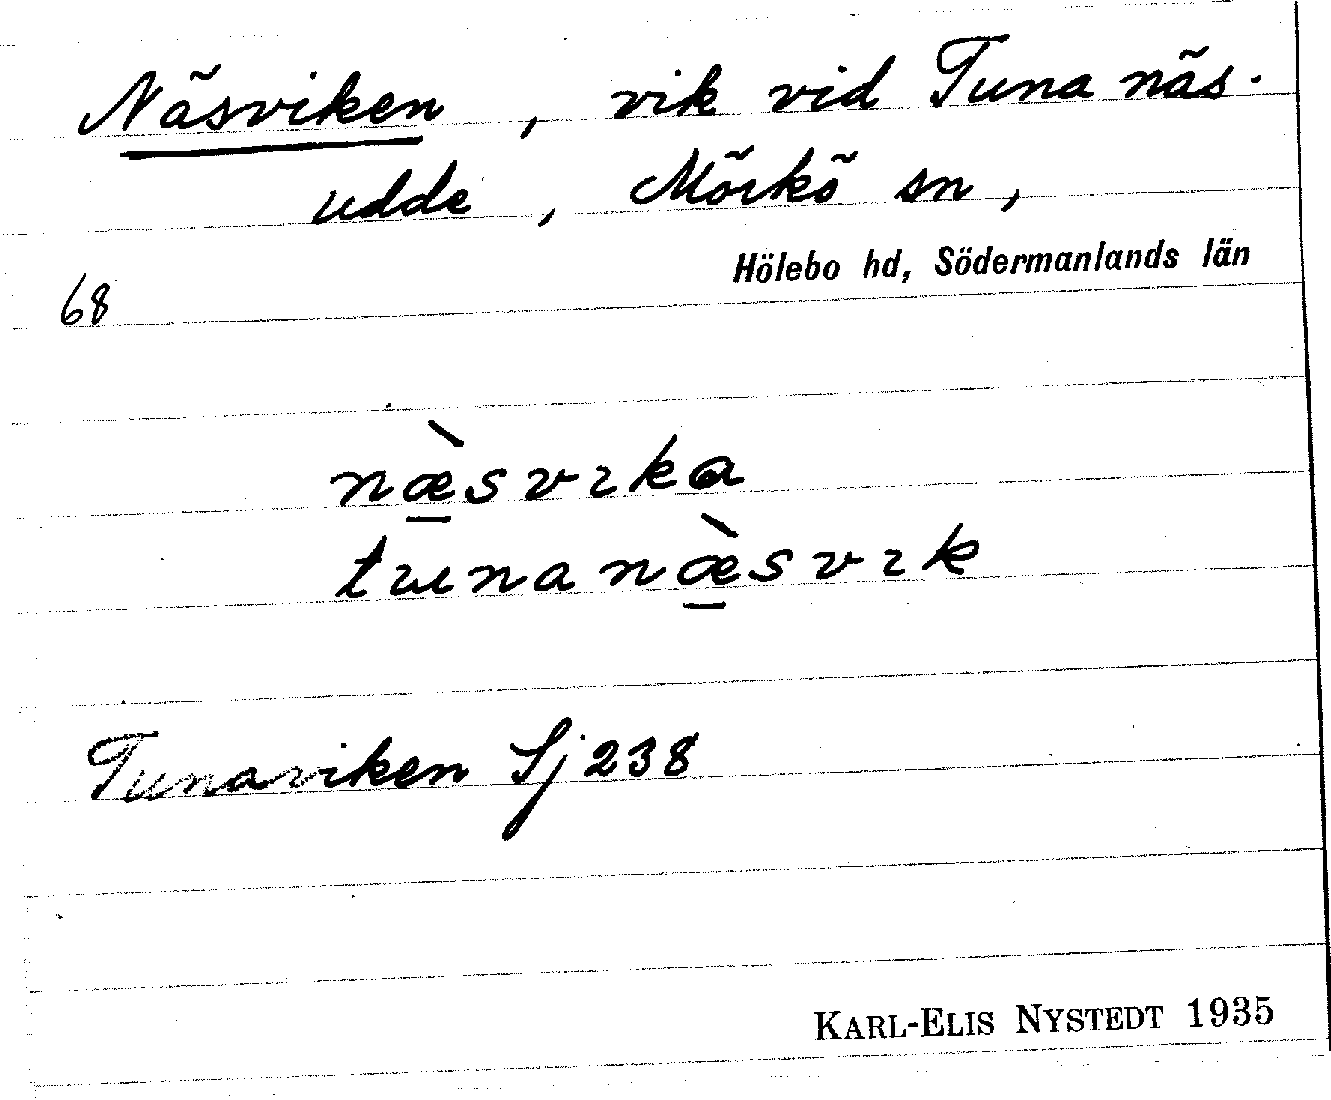 Näsviken, vik vid Tuna näs-
udde, Mörkö sn,
Hölebo hd, Södermanlands län
68
næ̀svıka
tunanæ̀svık
Tunaviken Sj 238
KARL-ELIS NYSTEDT 1935